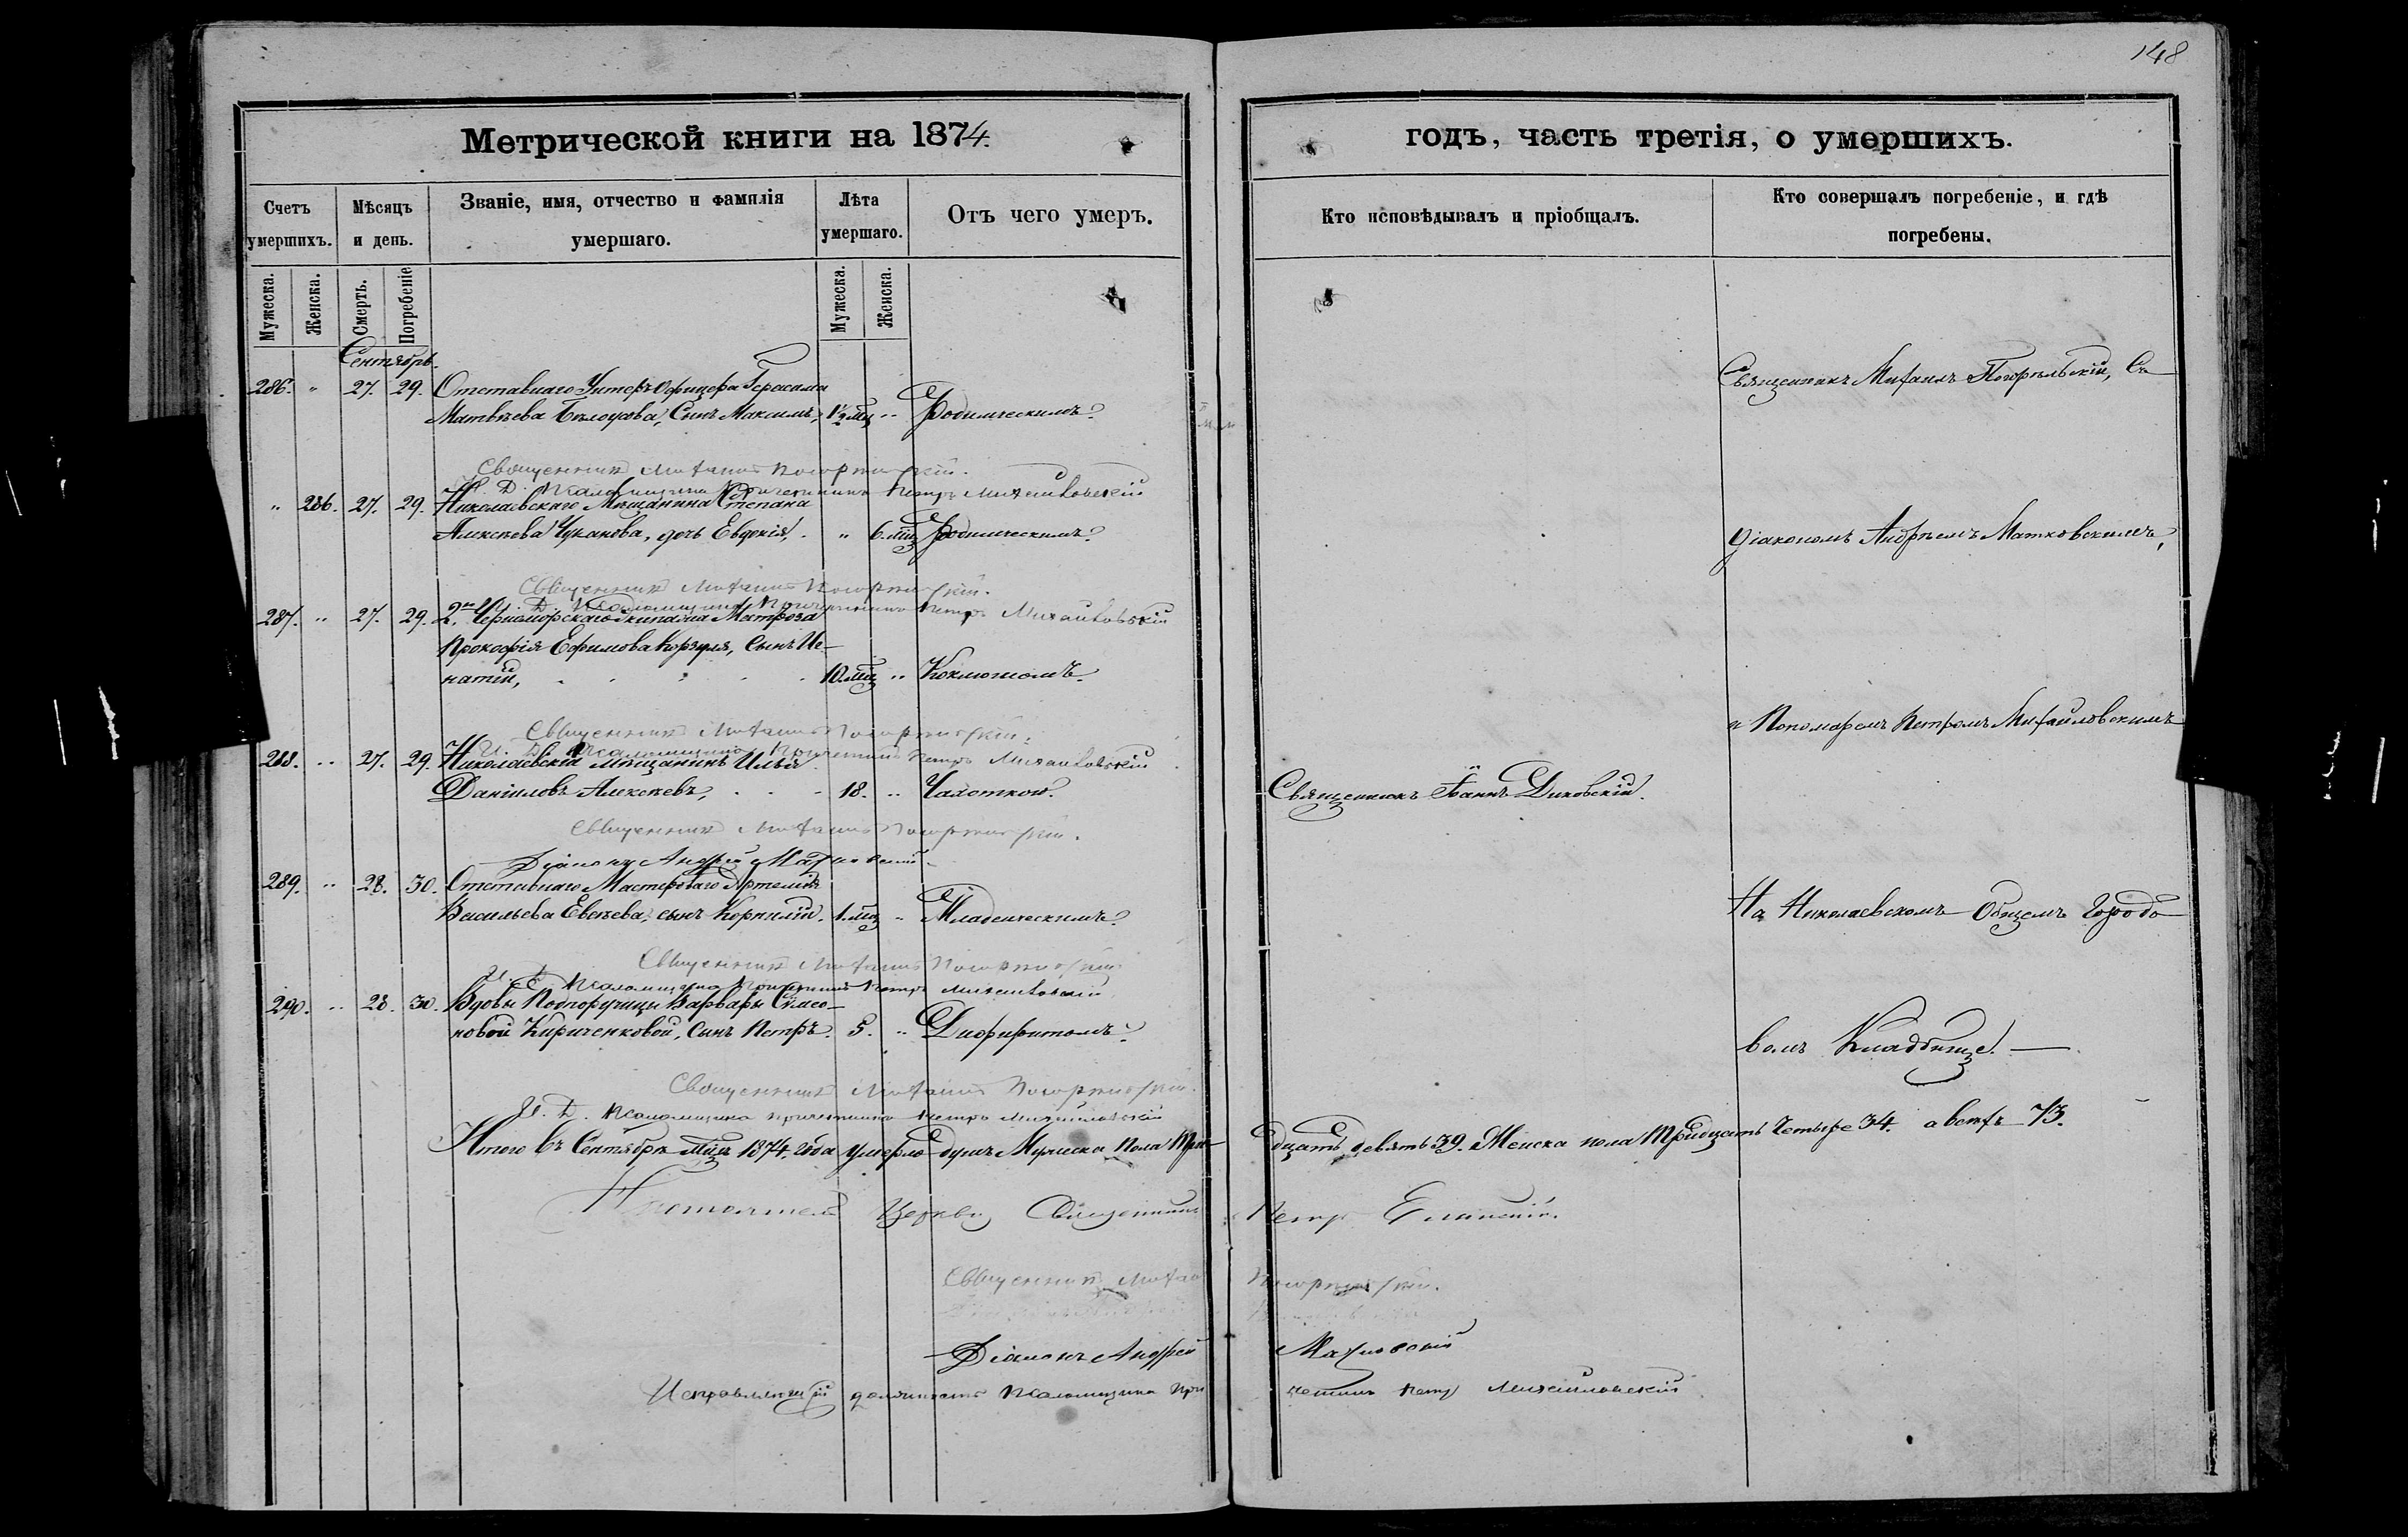 148
Метрической книги на 1874.
годъ, часть третія, о умершихъ.
Счетъ умершихъ.
Мѣсяцъ и день.
Званіе, имя, отчество и фамилія умершаго.
Лѣта умершаго.
Отъ чего умеръ.
Кто исповѣдывалъ и пріобщалъ.
Кто совершалъ погребеніе, и гдѣ погребены.
Мужеска.
Женска.
Смерть.
Погребеніе
Мужеска.
Женска.
Сентябрь.
286. " 27. 29. Отставнаго Унтеръ Офицера Герасима
Матвѣева сынъ Максимъ, 1½ мц " Родимическимъ.
Священникъ Михаилъ Погорѣльскій, съ
Священникъ Михаилъ Погорѣльскій.
И. Д. Псаломщика Причетникъ Петръ Михайловскій
" 286. 27. 29. Николаевскаго Мѣщанина Степана
Алексѣева Чуканова, дочь Евдокія, " 6. мц Родимическимъ.
Діакономъ Андреемъ Матковскимъ,
Священникъ Михаилъ Погорѣльскій.
И. Д. Псаломщика Причетникъ Петръ Михайловскій
287. " 27. 29. 2го Черноморскаго Экипажа Матроза
Прокофія Ефимова сынъ Иг-
натій, 10. мц " Коклюшомъ.
и Пономаремъ Петромъ Михайловскимъ
Священникъ Михаилъ Погорѣльскій.
И. Д. Псаломщика Причетникъ Петръ Михайловскій
288. " 27. 29. Николаевскій мѣщанинъ Илья
Даніиловъ Алексѣевъ, 18. " Чахоткою.
Священникъ Іоаннъ Диковскій.
Священникъ Михаилъ Погорѣльскій.
Діаконъ Андрей Матковскій
289. " 28. 30. Отставнаго Мастероваго Артемія
Васильева Евсѣева, сынъ Корнилій. 1. мц " Младенческимъ.
На Николаевскомъ Общемъ Городо-
Священникъ Михаилъ Погорѣльскій
И. Д. Псаломщика Причетникъ Петръ Михайловскій
290. " 28. 30. Вдовы Подпоручицы Варвары
Кириченковой, сынъ Петръ. 5. " Дифтеритомъ.
вомъ Кладбище.
Священникъ Михаилъ Погорѣльскій.
И. Д. Псаломщика причетникъ Петръ Михайловскій
Итого въ Сентябрѣ мцѣ 1874. года умерло душъ Мужеска пола Три-
дцать девять 39. Женска пола Тридцать Четыре 34. а всѣхъ 73.
Настоятель Церкви Священникъ Петръ
Священникъ Михаилъ Погорѣльскій.
Діаконъ Андрей Матковскій
Исправляющій должность Псаломщика При-
четникъ Петръ Михайловскій